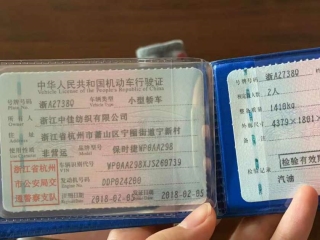 中华人民共和国机动车行驶证
Vehicle License of the People's Republic of China
号牌号码 浙AZ738Q 车辆类型 小型轿车
Plate No. Vehicle Type
所有人 浙江中佳纺织有限公司
Owner
住址 浙江省杭州市萧山区宁围街道宁新村
Address
使用性质 非营运 品牌型号 保时捷WP0AA298
Use Character Model
浙江省杭州
市公安局交
通警察支队
车辆识别代号
VIN
发动机号码
Engine No.
注册日期 2018-02-05 发证日期 2018-02-05
号牌号码 浙AZ738Q
核定载人数 2人
整备质量 1410kg
外廓尺寸 4379×1801
检验记录
检验有效期
汽油